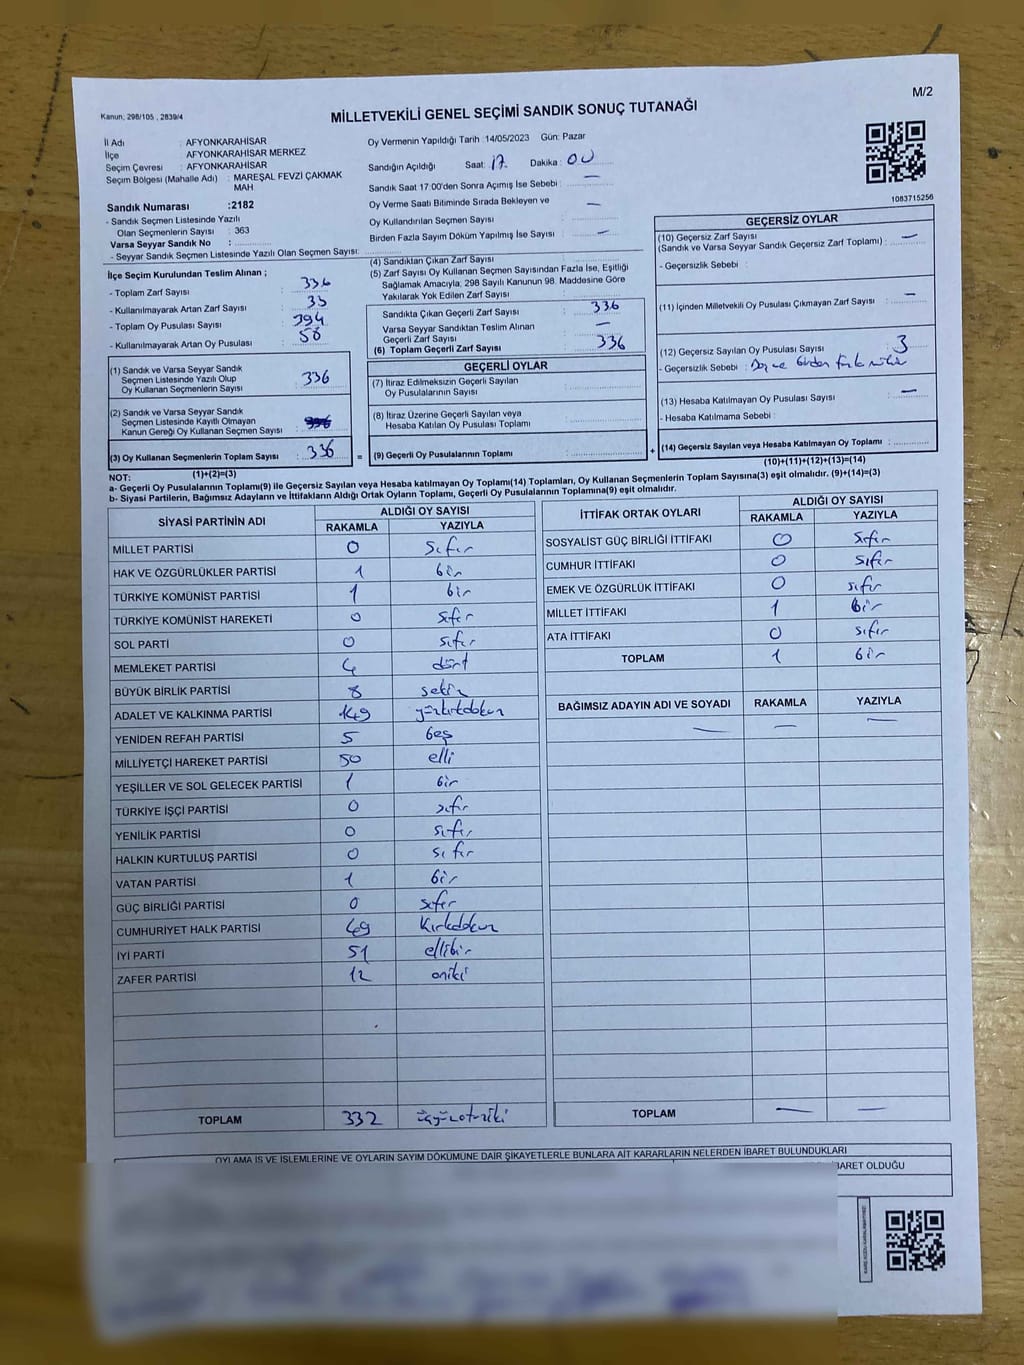 M/2
Kanun, 298/105 , 2839/4
MİLLETVEKİLİ GENEL SEÇİMİ SANDIK SONUÇ TUTANAĞI
İl Adı : AFYONKARAHİSAR
İlçe AFYONKARAHİSAR MERKEZ
Seçim Çevresi : AFYONKARAHİSAR
Seçim Bölgesi (Mahalle Adı) : MAREŞAL FEVZİ ÇAKMAK
MAH
Sandık Numarası :2182
- Sandık Seçmen Listesinde Yazılı
Olan Seçmenlerin Sayısı : 363
Varsa Seyyar Sandık No :
- Seyyar Sandık Seçmen Listesinde Yazılı Olan Seçmen Sayısı:
Oy Vermenin Yapıldığı Tarih 14/05/2023 Gün: Pazar
Sandığın Açıldığı Saat: 17. Dakika : 00
Sandık Saat 17:00'den Sonra Açımış İse Sebebi : —
Oy Verme Saati Bitiminde Sırada Bekleyen ve
Oy Kullandırılan Seçmen Sayısı : —
Birden Fazla Sayım Döküm Yapılmış İse Sayısı : —
1083715256
İlçe Seçim Kurulundan Teslim Alınan ;
- Toplam Zarf Sayısı :
- Kullanılmayarak Artan Zarf Sayısı :
- Toplam Oy Pusulası Sayısı : 394
- Kullanılmayarak Artan Oy Pusulası : 58
(1) Sandık ve Varsa Seyyar Sandık
Seçmen Listesinde Yazılı Olup
Oy Kullanan Seçmenlerin Sayısı : 336
(2) Sandık ve Varsa Seyyar Sandık
Seçmen Listesinde Kayıtlı Olmayan
Kanun Gereği Oy Kullanan Seçmen Sayısı :
(3) Oy Kullanan Seçmenlerin Toplam Sayısı : 336
(4) Sandıktan Çıkan Zarf Sayısı :
(5) Zarf Sayısı Oy Kullanan Seçmen Sayısından Fazla İse, Eşitliği
Sağlamak Amacıyla, 298 Sayılı Kanunun 98. Maddesine Göre
Yakılarak Yok Edilen Zarf Sayısı :
Sandıkta Çıkan Geçerli Zarf Sayısı : 336
Varsa Seyyar Sandıktan Teslim Alınan
Geçerli Zarf Sayısı : —
(6) Toplam Geçerli Zarf Sayısı 336
GEÇERLİ OYLAR
(7) İtiraz Edilmeksizin Geçerli Sayılan
Oy Pusulalarının Sayısı :
(8) İtiraz Üzerine Geçerli Sayılan veya
Hesaba Katılan Oy Pusulası Toplamı :
= (9) Geçerli Oy Pusulalarının Toplamı :
GEÇERSİZ OYLAR
(10) Geçersiz Zarf Sayısı
(Sandık ve Varsa Seyyar Sandık Geçersiz Zarf Toplamı) : —
- Geçersizlik Sebebi :
(11) İçinden Milletvekili Oy Pusulası Çıkmayan Zarf Sayısı : —
(12) Geçersiz Sayılan Oy Pusulası Sayısı : 3
- Geçersizlik Sebebi :
(13) Hesaba Katılmayan Oy Pusulası Sayısı : —
- Hesaba Katılmama Sebebi :
+ (14) Geçersiz Sayılan veya Hesaba Katılmayan Oy Toplamı :
NOT: (1)+(2)=(3)
(10)+(11)+(12)+(13)=(14)
a- Geçerli Oy Pusulalarının Toplamı(9) ile Geçersiz Sayılan veya Hesaba Katılmayan Oy Toplamı(14) Toplamları, Oy Kullanan Seçmenlerin Toplam Sayısına(3) eşit olmalıdır. (9)+(14)=(3)
b- Siyasi Partilerin, Bağımsız Adayların ve İttifakların Aldığı Ortak Oyların Toplamı, Geçerli Oy Pusulalarının Toplamına(9) eşit olmalıdır.
SİYASİ PARTİNİN ADI ALDIĞI OY SAYISI
RAKAMLA YAZIYLA
MİLLET PARTİSİ 0 sıfır
HAK VE ÖZGÜRLÜKLER PARTİSİ 1 bir
TÜRKİYE KOMÜNİST PARTİSİ 1 bir
TÜRKİYE KOMÜNİST HAREKETİ 0 sıfır
SOL PARTİ 0 sıfır
MEMLEKET PARTİSİ 4 dört
BÜYÜK BİRLİK PARTİSİ 8 sekiz
ADALET VE KALKINMA PARTİSİ 149 yüzkırkdokuz
YENİDEN REFAH PARTİSİ 5 beş
MİLLİYETÇİ HAREKET PARTİSİ 50 elli
YEŞİLLER VE SOL GELECEK PARTİSİ 1 bir
TÜRKİYE İŞÇİ PARTİSİ 0 sıfır
YENİLİK PARTİSİ 0 sıfır
HALKIN KURTULUŞ PARTİSİ 0 sıfır
VATAN PARTİSİ 1 bir
GÜÇ BİRLİĞİ PARTİSİ 0 sıfır
CUMHURİYET HALK PARTİSİ 49 kırkdokuz
İYİ PARTİ 51 ellibir
ZAFER PARTİSİ 12 oniki
TOPLAM 332 üçyüzotuziki
İTTİFAK ORTAK OYLARI ALDIĞI OY SAYISI
RAKAMLA YAZIYLA
SOSYALİST GÜÇ BİRLİĞİ İTTİFAKI 0 sıfır
CUMHUR İTTİFAKI 0 sıfır
EMEK VE ÖZGÜRLÜK İTTİFAKI 0 sıfır
MİLLET İTTİFAKI 1 bir
ATA İTTİFAKI 0 sıfır
TOPLAM 1 bir
BAĞIMSIZ ADAYIN ADI VE SOYADI RAKAMLA YAZIYLA
— — —
TOPLAM — —
OYLAMA İŞ VE İŞLEMLERİNE VE OYLARIN SAYIM DÖKÜMÜNE DAİR ŞİKAYETLERLE BUNLARA AİT KARARLARIN NELERDEN İBARET BULUNDUKLARI
İBARET OLDUĞU